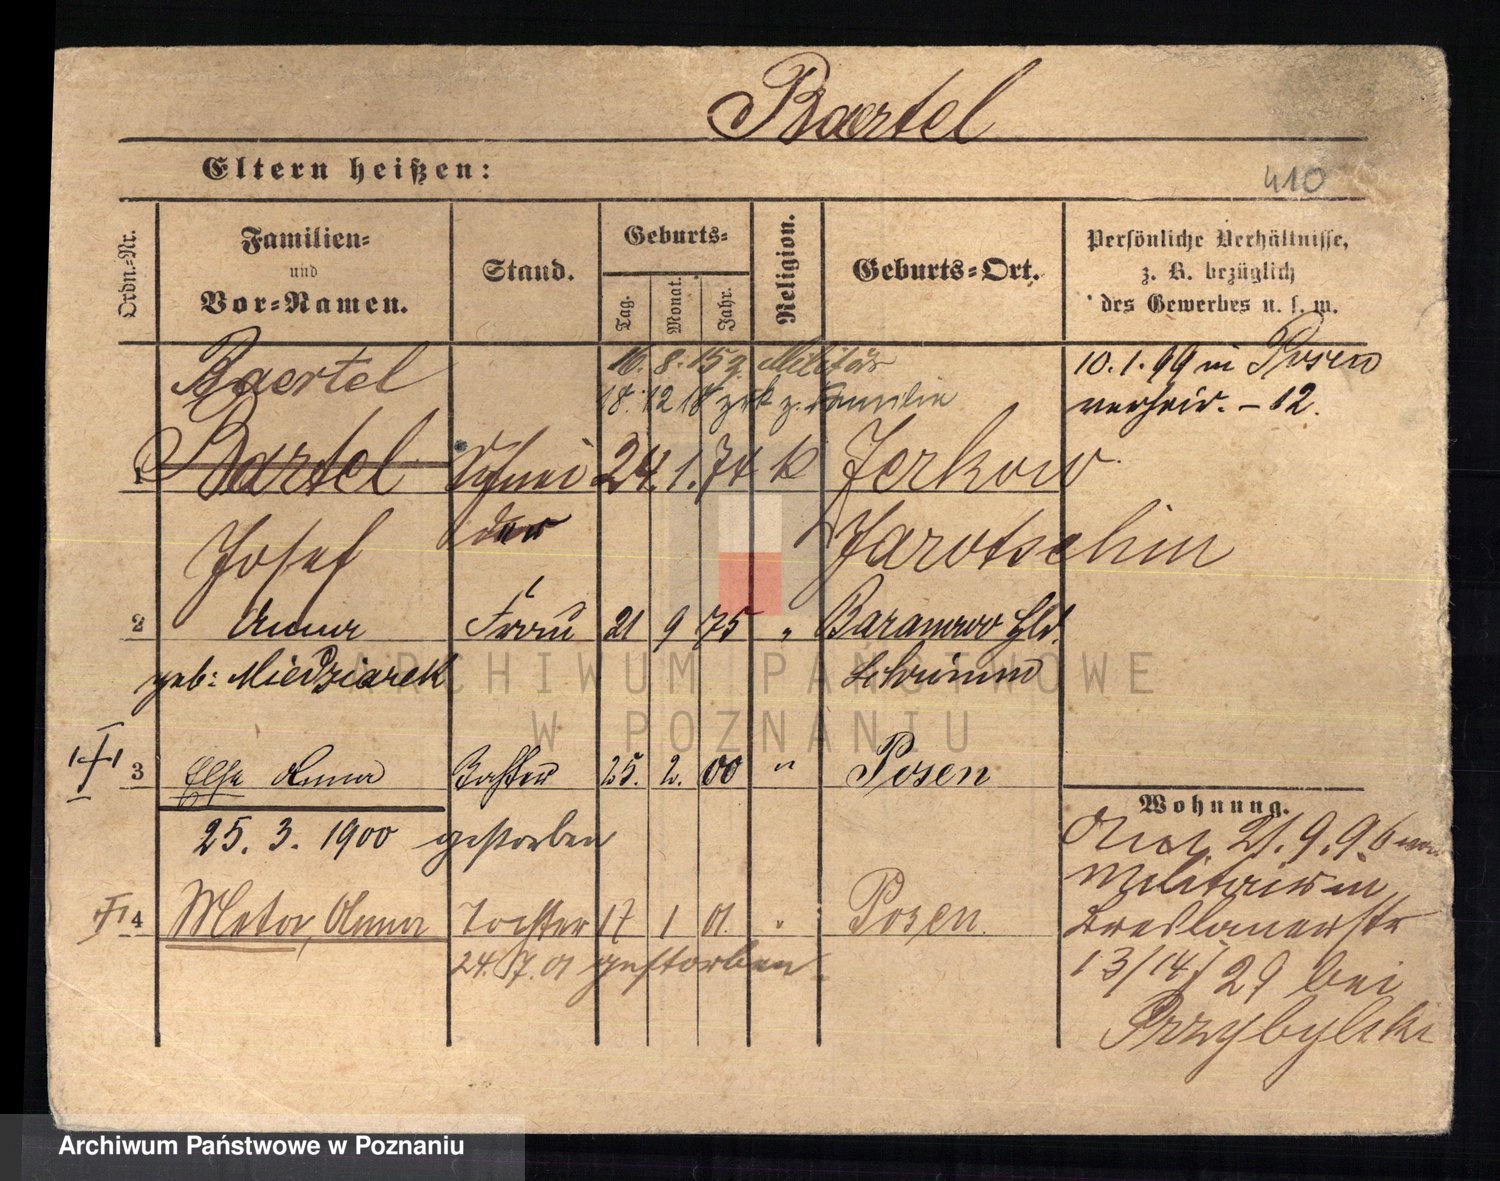 Baertel
Eltern heißen:
410
Ordn.-Nr.
Familien-
und
Vor-Namen.
Stand.
Geburts-
Tag.
Monat.
Jahr.
Religion.
Geburts-Ort.
Persönliche Verhältnisse,
z. B. bezüglich
des Gewerbes u. s. w.
Baertel 16. 8. 15 z. Militär 10. 1. 99 in Posen
18. 12 18 zrk z. Familie verheir. – 12.
1 Bartel Schnei 24. 1. 74 k Jerkow
Josef der Jarotschin
2 Anna Frau 21 9 75 " Baranowo Hld.
geb: Miedziarek Schrimm
3 Else Anna Tochter 25. 2. 00 " Posen
Wohnung.
25. 3. 1900 gestorben
21. 9. 96 vom
4 Meta, Anna Tochter 17 1 01. " Posen.
Militair in
Breslauerstr
24. 7. 01 gestorben.
13/14 / 29 bei
Przybylski
ARCHIWUM PAŃSTWOWE
W POZNANIU
Archiwum Państwowe w Poznaniu